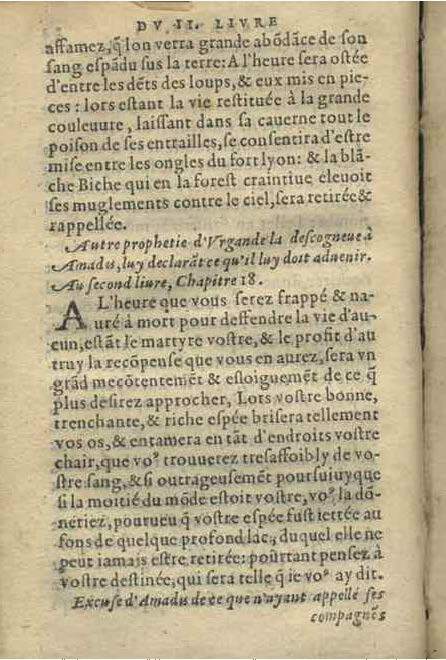 DV II. LIVRE
affamez, q̃ lon verra grande abõdãce de son
sang espãdu sus la terre: A l'heure sera ostée
d'entre les dẽts des loups, & eux mis en pie-
ces : lors estant la vie restituée à la grande
couleuure, laissant dans sa cauerne tout le
poison de ses entrailles, se consentira d'estre
mise entre les ongles du fort lyon: & la blã-
che Biche qui en la forest craintiue eleuoit
ses muglements contre le ciel, sera retirée &
rappellée.
Autre prophetie d'Vrgande la descogneue à
Amadis, luy declarãt ce qu'il luy doit aduenir.
Au second liure, Chapitre 18.
A L'heure que vous serez frappé & na-
uré à mort pour deffendre la vie d'au-
cun, estãt le martyre vostre, & le profit d'au
truy la recõpense que vous en aurez, sera vn
grãd mecõtentemẽt & esloiguemẽt de ce q̃
plus desirez approcher, Lors vostre bonne,
trenchante, & riche espée brisera tellement
vos os, & entamera en tãt d'endroits vostre
chair, que voꝰ trouuerez tresaffoibly de vo-
stre sang, & si outrageusemẽt poursuiuy que
si la moitié du mõde estoit vostre, voꝰ la dõ-
neriez, pourueu q̃ vostre espée fust iettée au
fons de quelque profond lac, duquel elle ne
peut iamais estre retirée: pourtant pensez à
vostre destinée, qui sera telle q̃ ie voꝰ ay dit.
Excuse d'Amadis de ce que n'ayant appellé ses
compagnõs